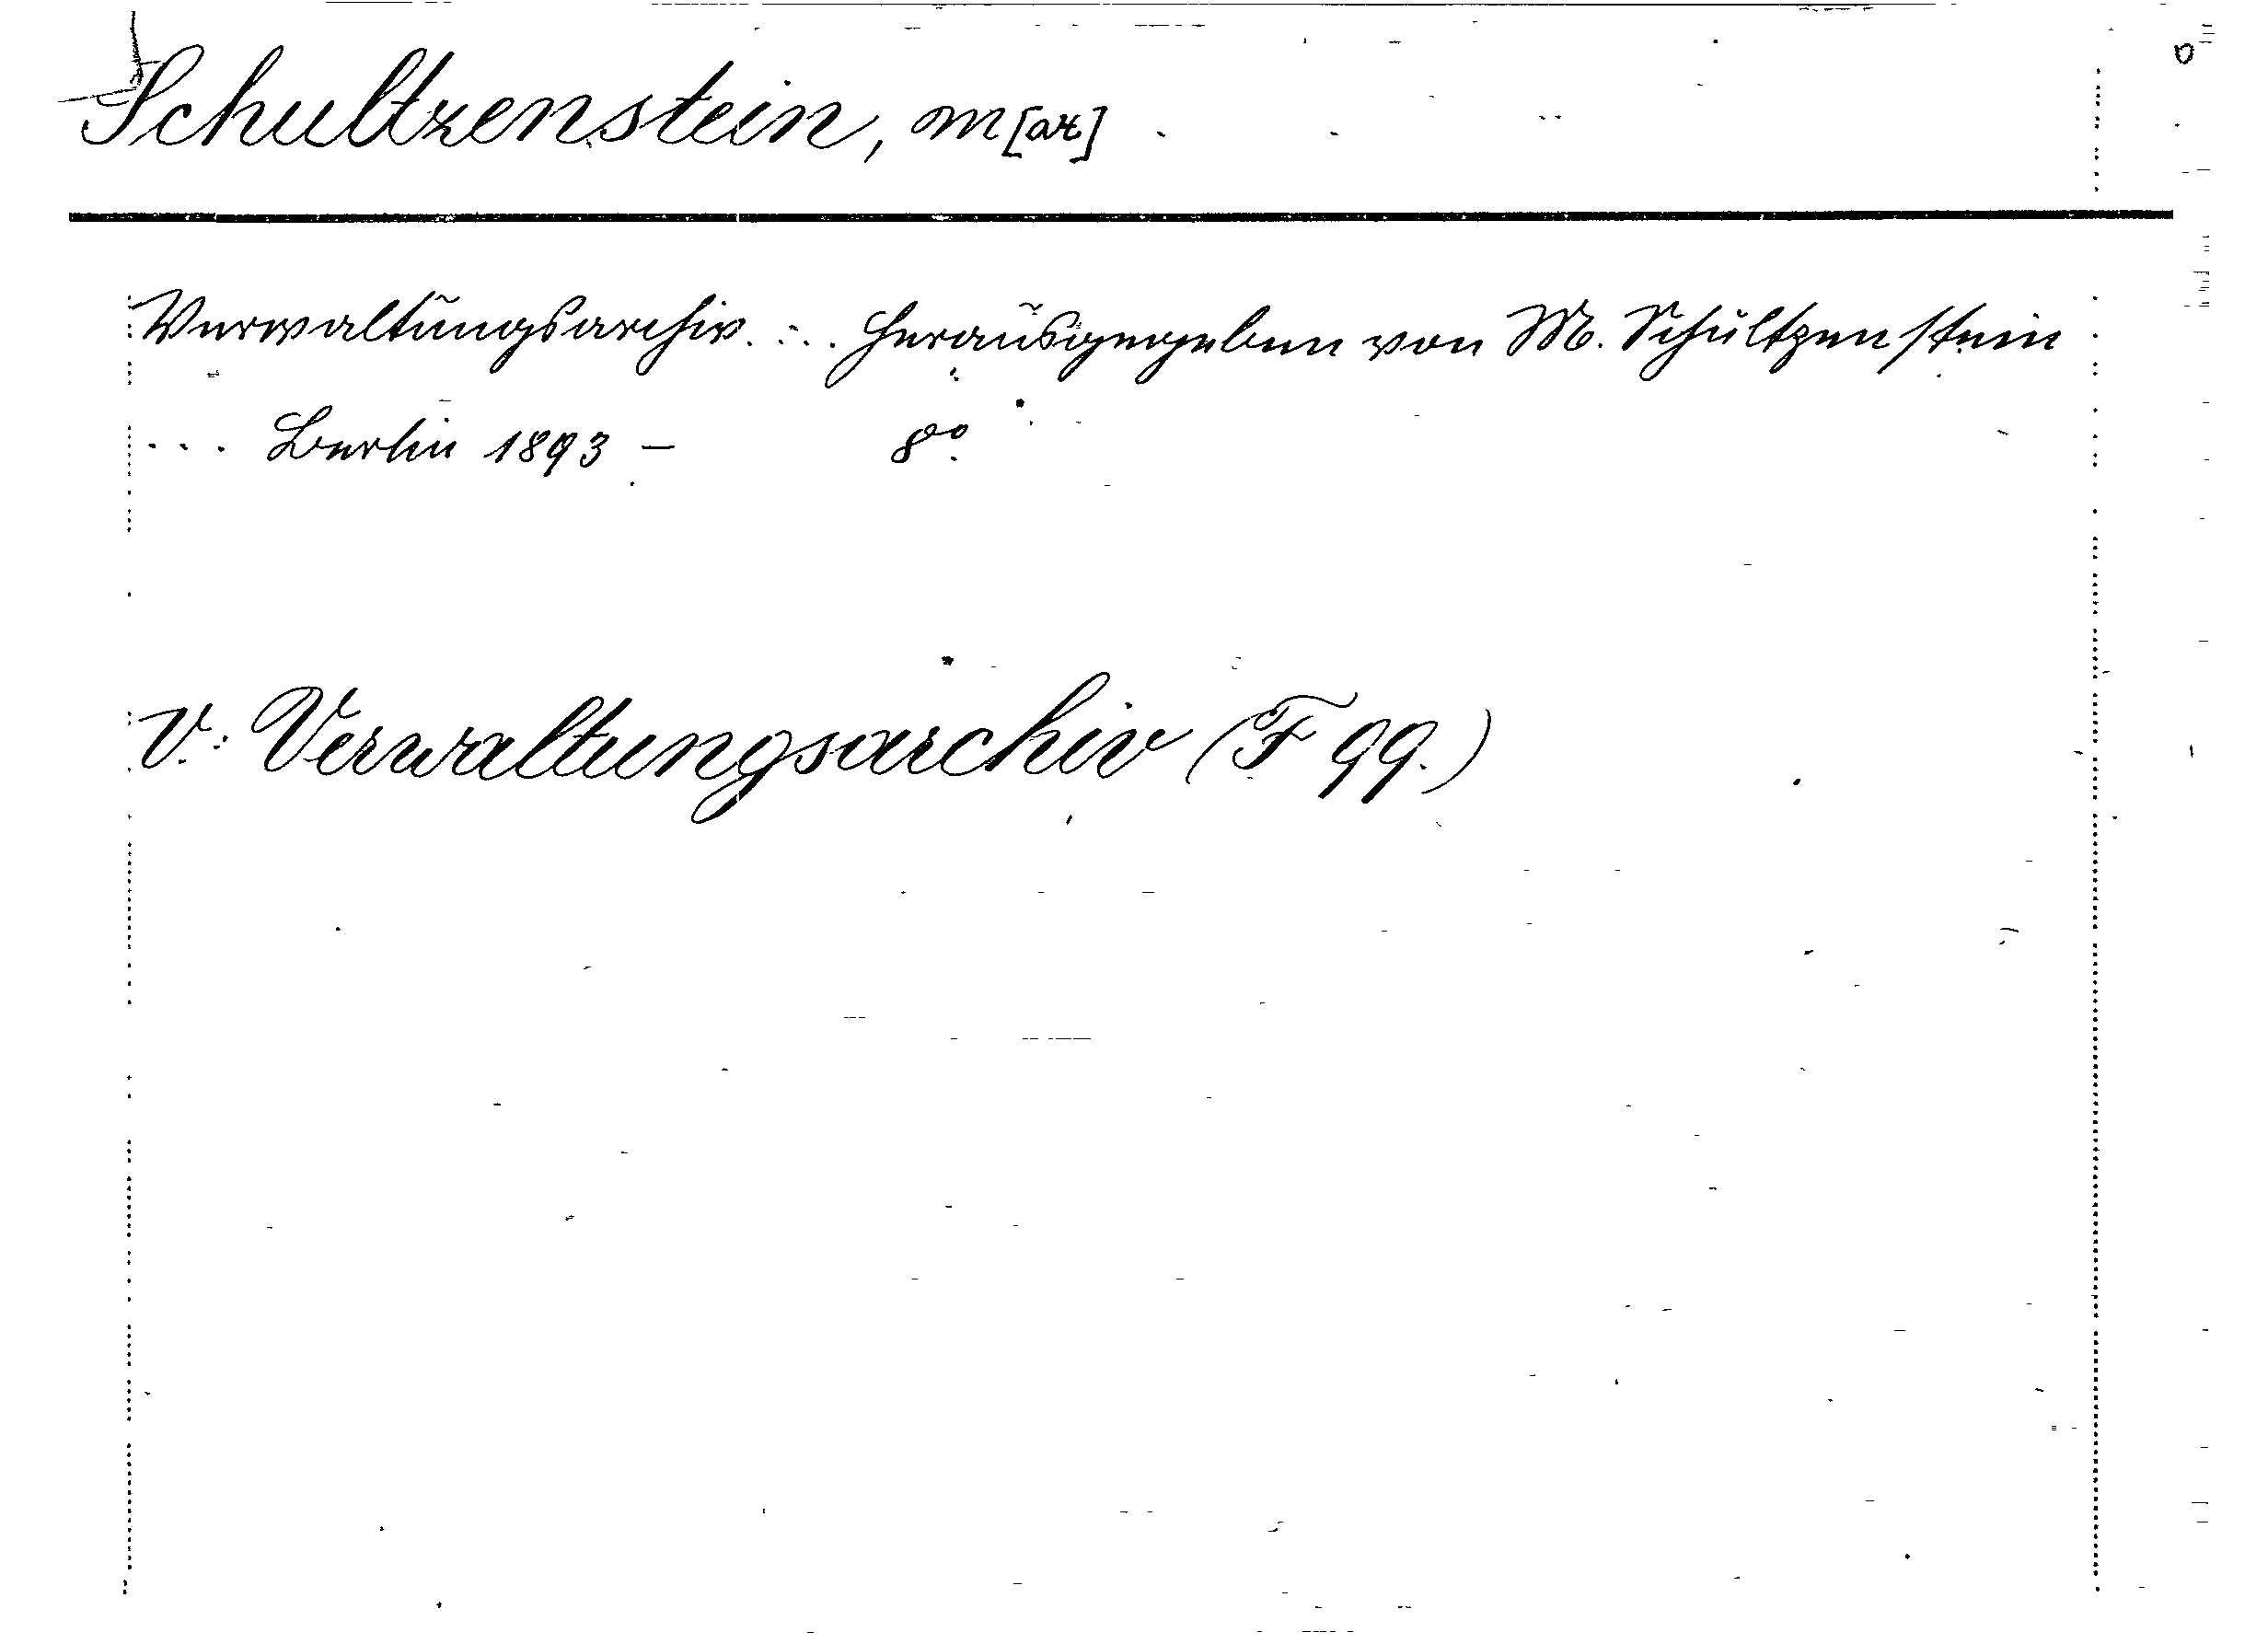 Schultzenstein, M[ax]
Verwaltungsarchiv. ... herausgegeben von M. Schultzenstein
... Berlin 1893 – 8°.
V.: Verwaltungsarchiv (F 99.)